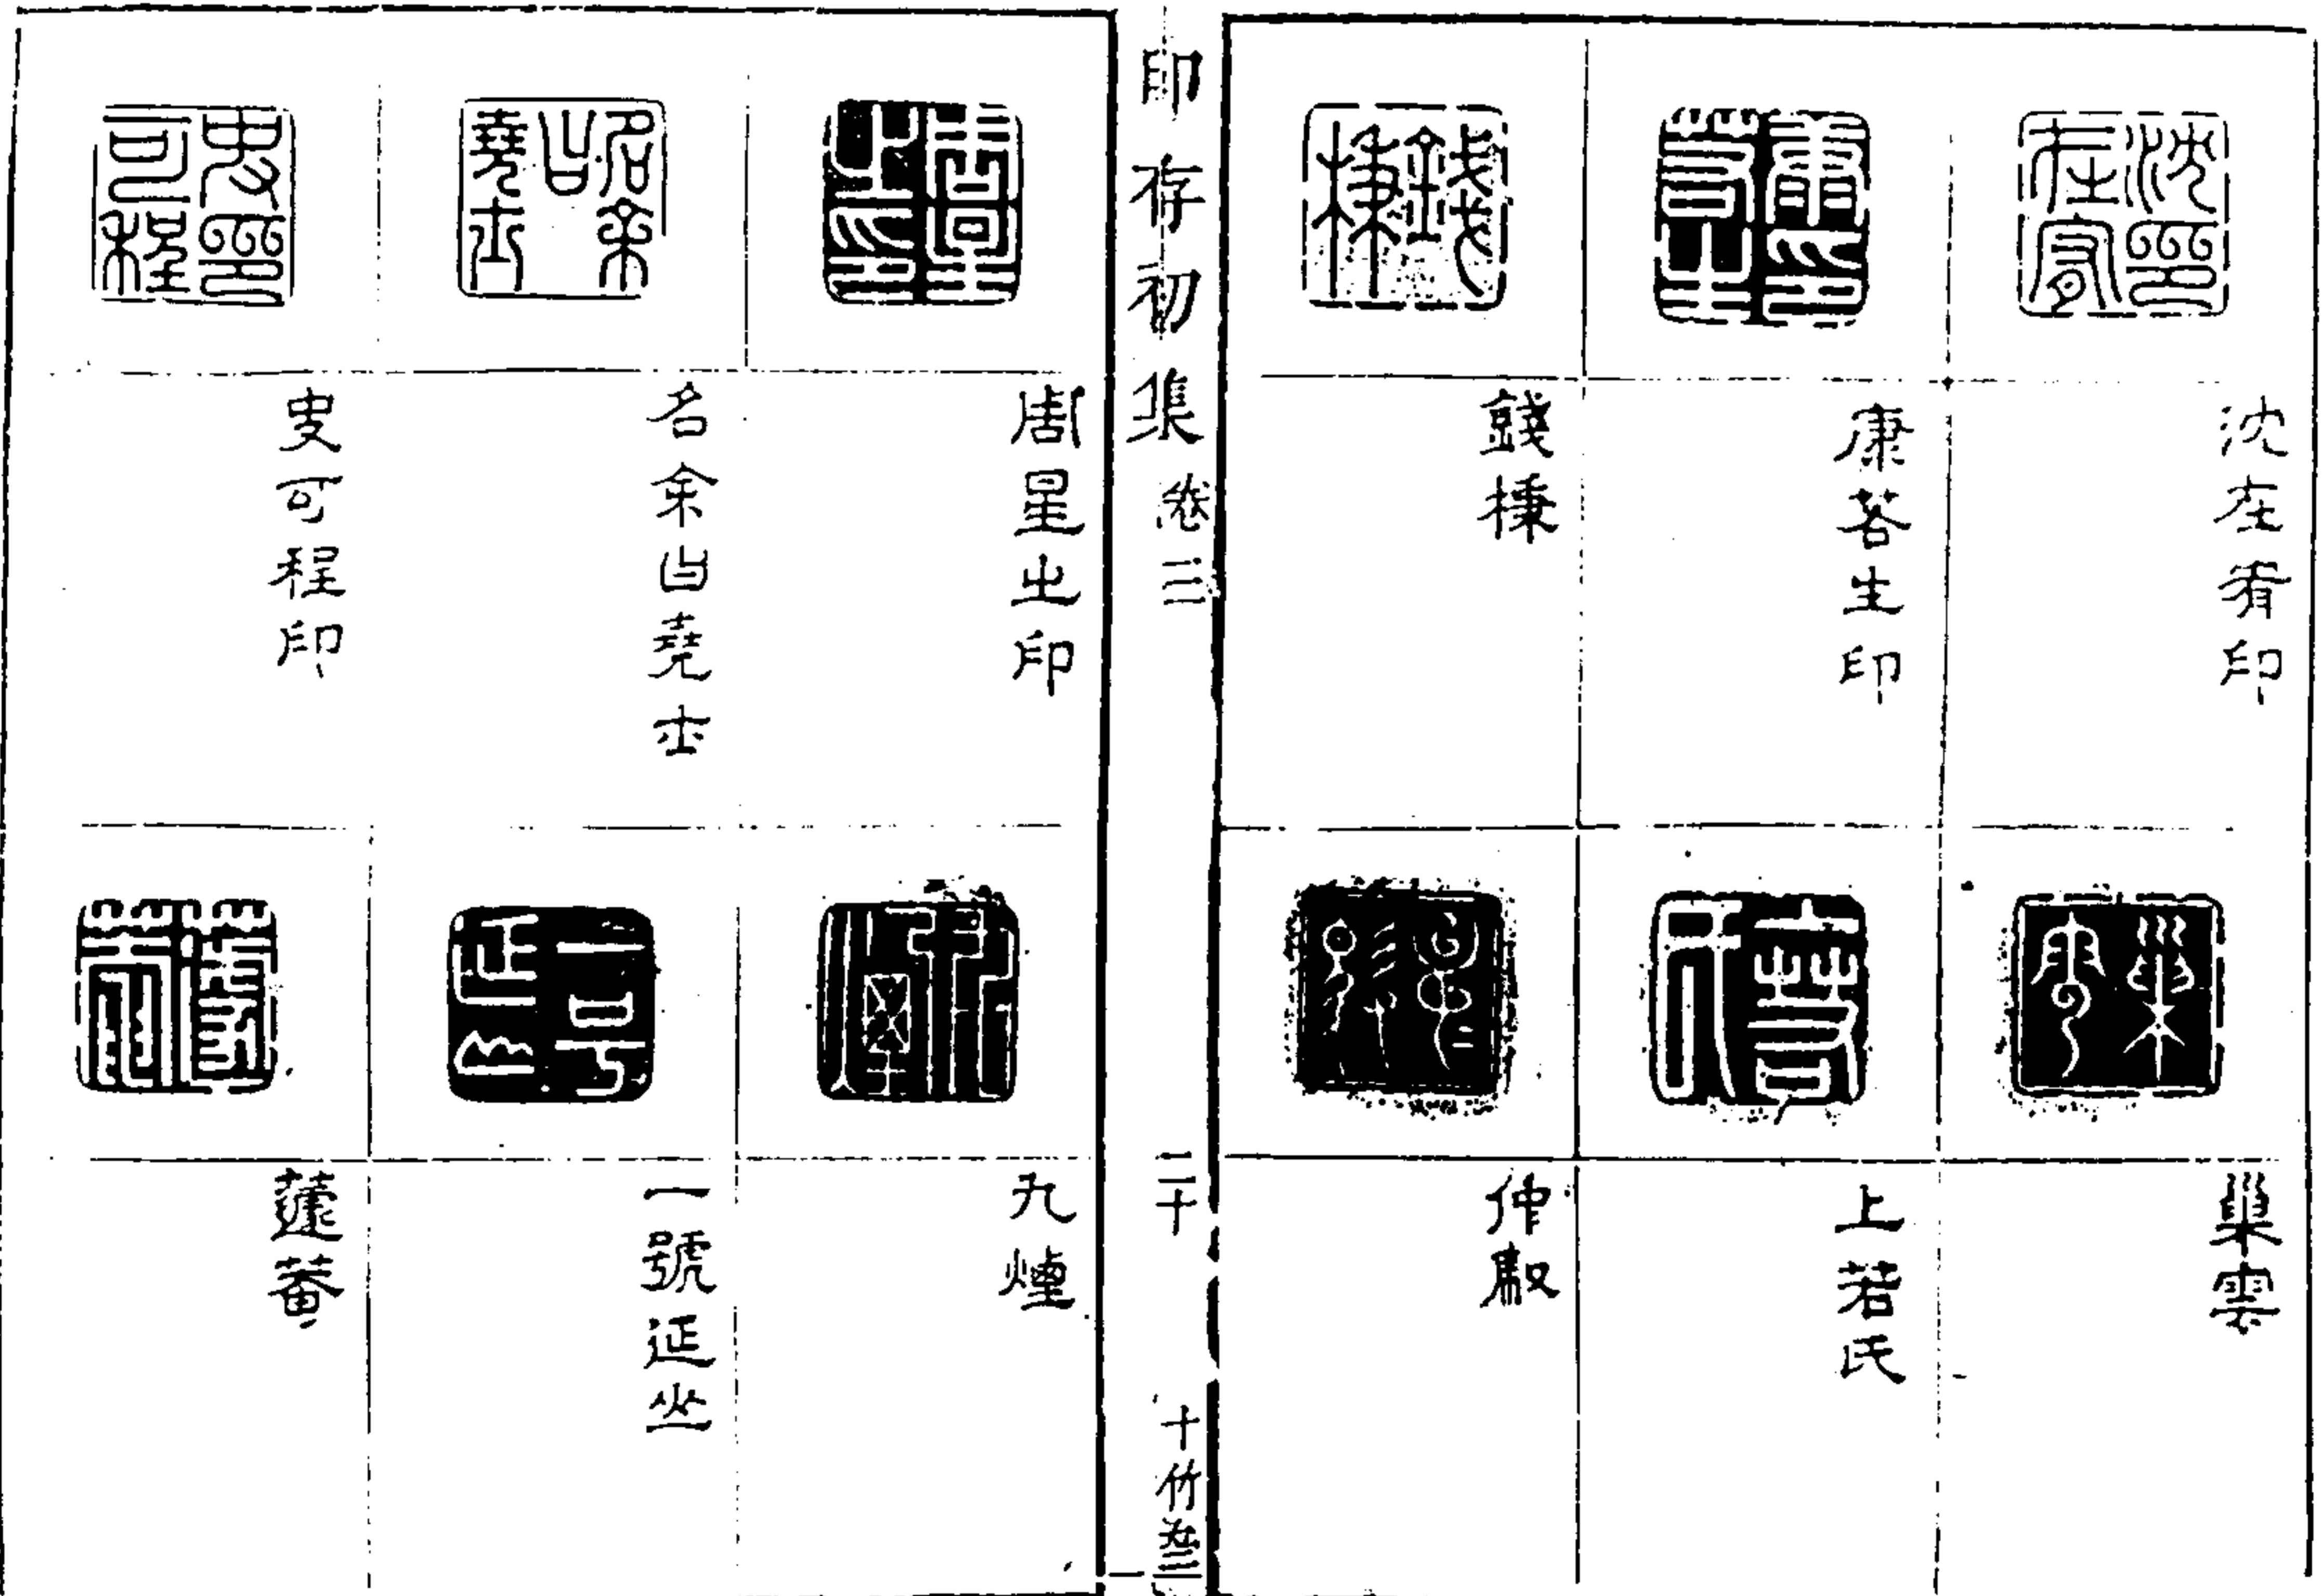 沈在宥印
康若生印
錢棅
巢雲
上若氏
仲馭
印存初集 卷三 二十 十竹齋
周星之印
名余曰堯士
史可程印
九煙
一號延丘
蘧菴